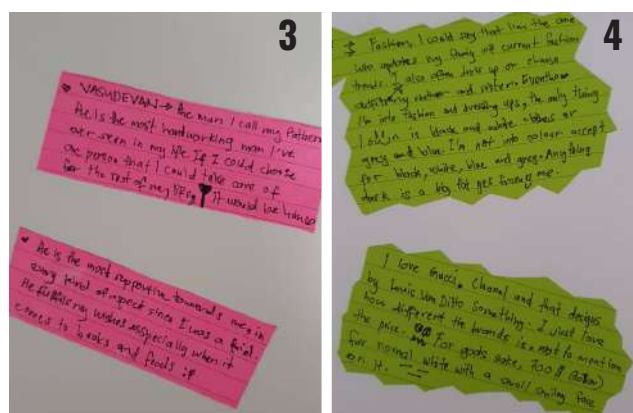 3
VASUDEVAN → the man I call my Father.
He is the most hardworking man I've
ever seen in my life. If I could choose
one person that I could take care of
for the rest of my life, it would be
He is the most supportive towards me, in
every kind of aspect since I was a
He fulfills my wishes especially when it
comes to books and foods :p
4
→ Fashion, I could say that I'm the one
who updates my family of current fashion
trends. I also often dress up or choose
outfits my mother and sister. Eventho
I'm into fashion and dressing ups, the only thing
I is black and white clothes or
greys and blue. I'm not into colour accept
for black, white, blue and grey. Anything
dark is a big fat yes from me.
I love Gucci, Chanel and that designs
by Louis Van Ditto something. I just love
how different the brands is, not to mention
the price. For gods sake, 700 $ (dollar)
for normal white with a small smiley face
on it.